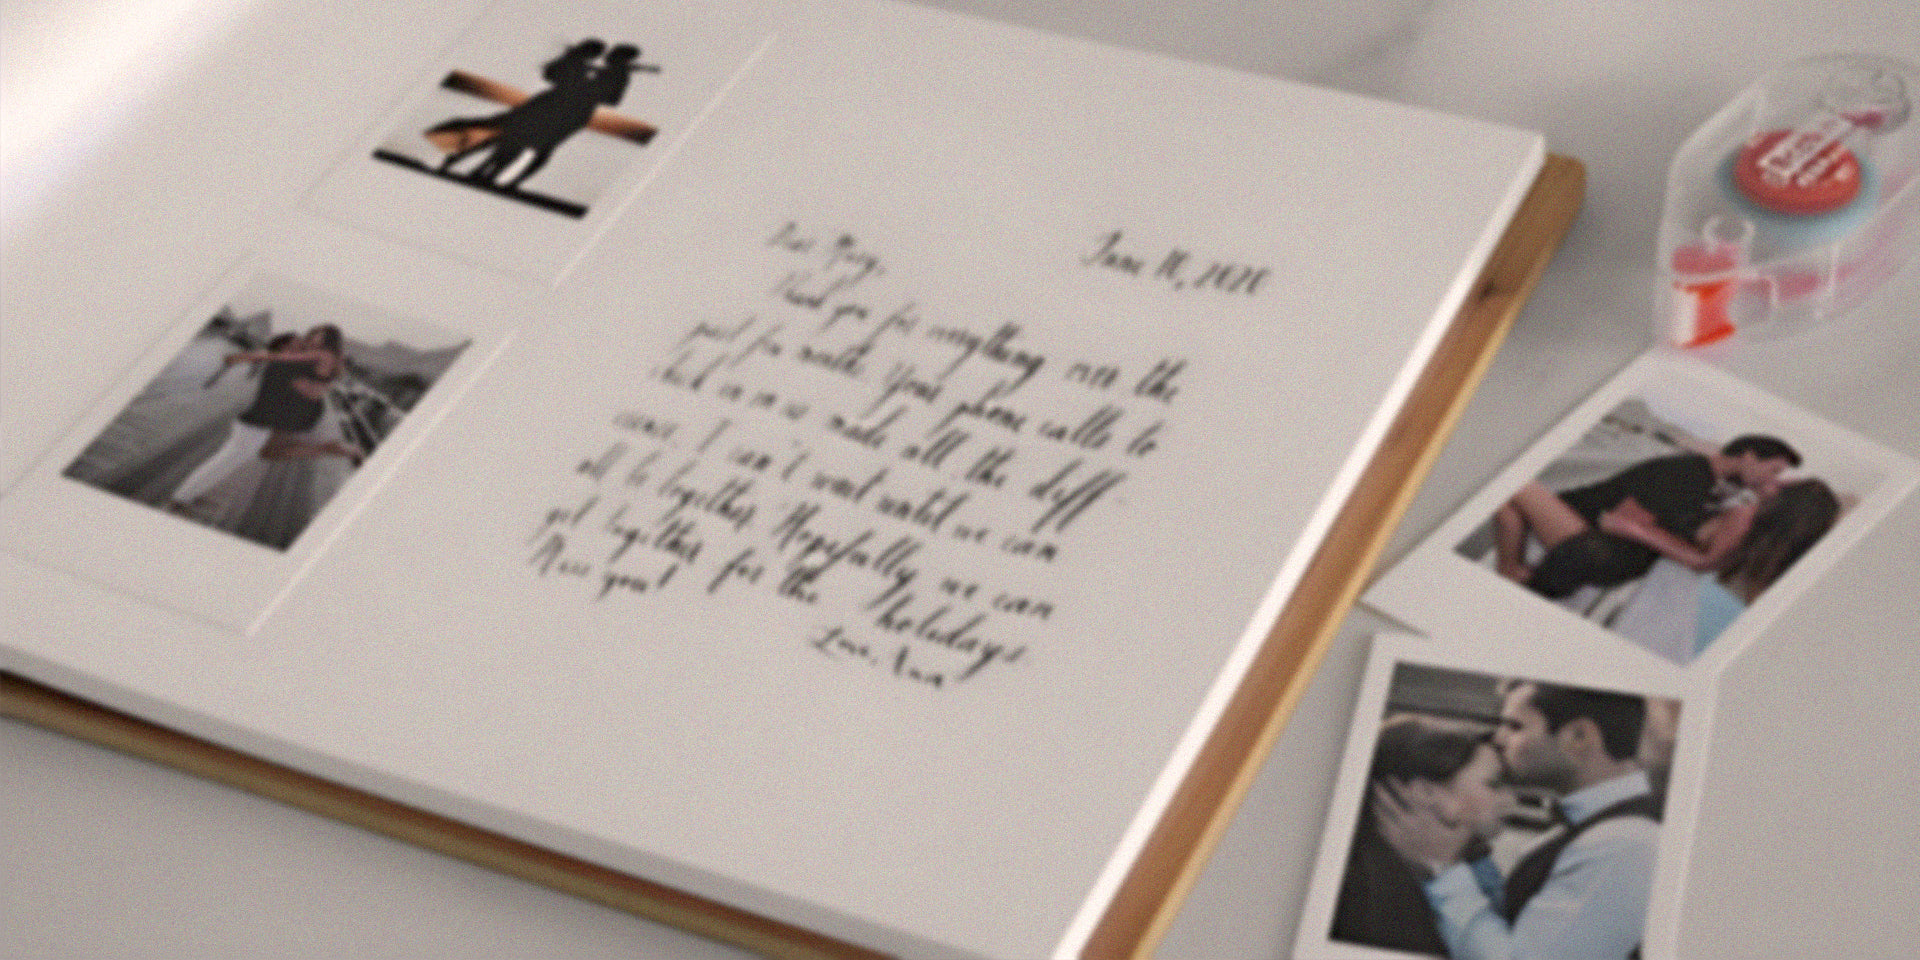 June 16, 2020
Dear Mary,
Thank you for everything over the
past few months. Your phone calls to
check in on us made all the diff-
erence. I can't wait until we can
all be together. Hopefully we can
get together for the holidays.
Miss you!
Love, Ana